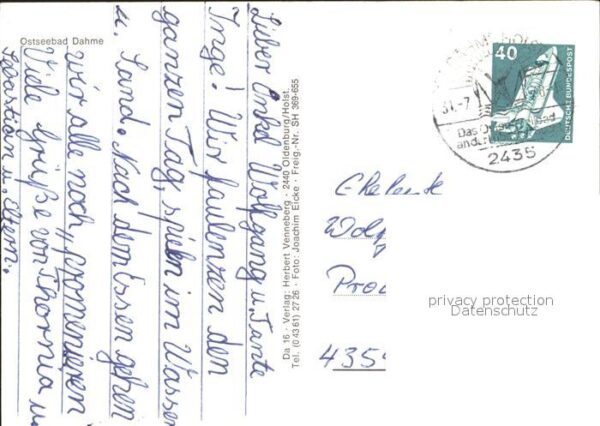 Ostseebad Dahme
Lieber Onkel Wolfgang u. Tante
Inge! Wir faulenzen den
ganzen Tag, spielen im Wasser
u. Sand. Nach dem Essen gehen
wir alle noch „promenieren
Viele Grüße von Thornia, u.
Sebastian u. Eltern.
Da 16 · Verlag: Herbert Venneberg · 2440 Oldenburg/Holst.
Tel. (04361) 2726 · Foto: Joachim Eicke · Freig.-Nr. SH 369-655
40
DEUTSCHE BUNDESPOST
31.-7
Das O
and
2435
Eheleute
Wolf
Pro
435
privacy protection
Datenschutz